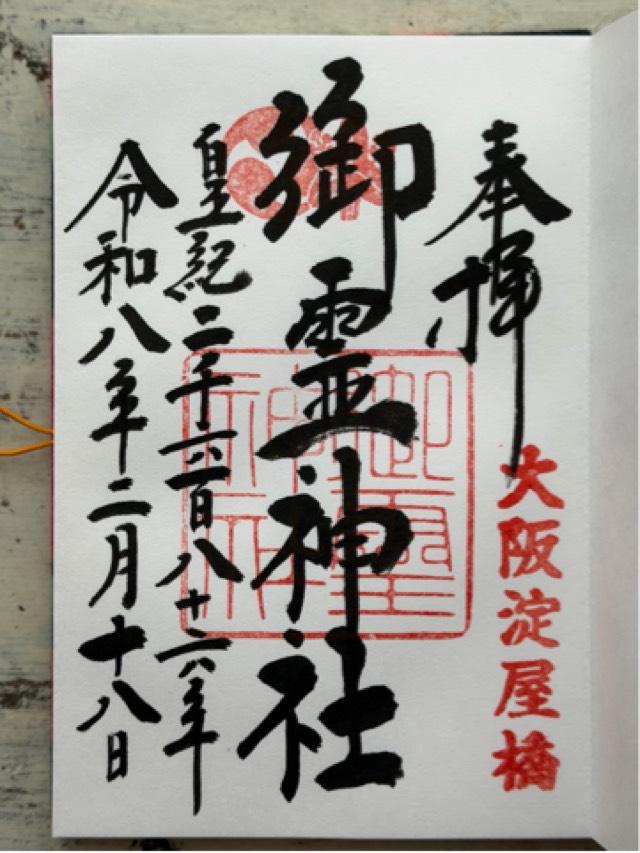 奉拝
大阪淀屋橋
御霊神社
御霊神社
皇紀二千六百八十六年
令和八年二月十八日